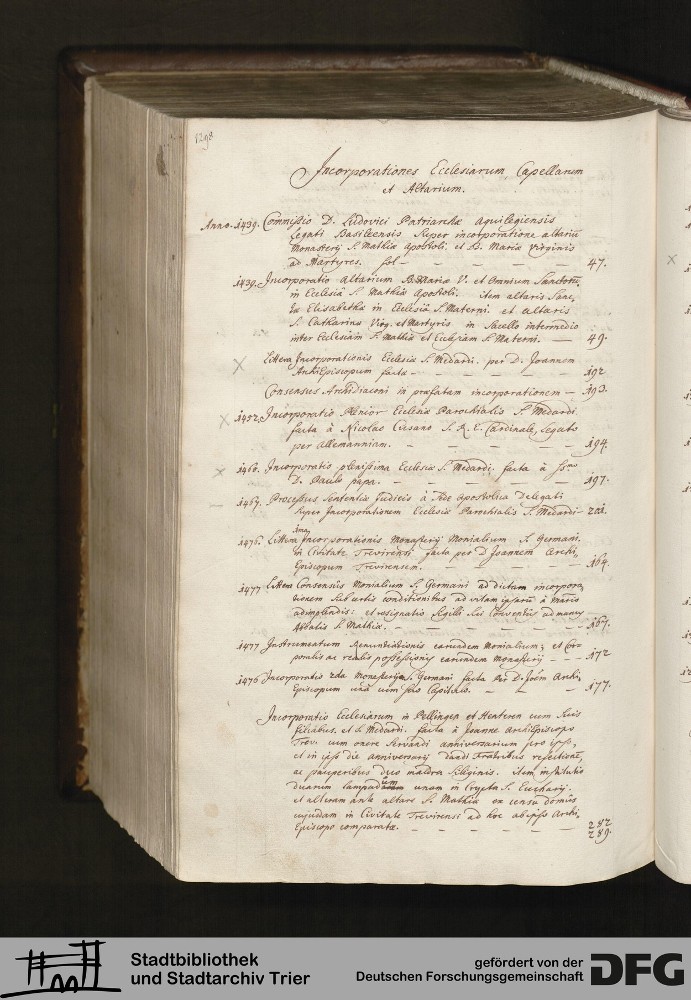 1298
Incorporationes Ecclesiarum, Capellarum
et Altarium.
Anno. 1439. Commissio D. Ludovici Patriarchæ Aquilegiensis
Legati Basileensis super incorporatione altaris
Monasterij S. Mathiæ Apostoli et B. Mariæ Virginis
ad Martyres. fol - 47.
1439. Incorporatio altarium B. Mariæ V. et Omnium Sanctorū,
in Ecclesiâ S. Mathiæ Apostoli. item altaris Sanc,
tæ Elisabethæ in Ecclesiâ S. Materni. et altaris
S. Catharinæ Virg. et Martyris in Sacello intermedio
inter Ecclesiam S. Mathiæ et Ecclesiam S. Materni. — 49.
Littera Incorporationis Ecclesiæ S. Medardi. per D. Joannem
ArchiEpiscopum facta - 192
Consensus Archidiaconi in præfatam incorporationem — 193.
1452. Incorporatio plenior Ecclesiæ Parochialis S. Medardi.
facta à Nicolao Cusano S. R. E. Cardinale, Legato
per Allemanniam. - 194.
1460. Incorporatio plenissima Ecclesiæ S. Medardi. facta à Ssmo
D. Paulo papa. - 197.
1467. Processus Sententiæ Judicis à Sede Apostolica Delegati
super Incorporationem Ecclesiæ Parochialis S. Medardi - 201.
1476. Littera 1ma Incorporationis Monasterij Monialium S. Germani.
in Civitate Trevirensi facta per D Joannem Archi,
Episcopum Trevirensem. - 164.
1477 Littera Consensûs Monialium S. Germani ad dictam incorpora,
tionem sub certis conditionibus ad vitam ipsarū à
adimplendis: et resignatio Sigilli sui Conventûs ad manus
Abbatis S. Mathiæ. - 167.
1477 Instrumentum Renuntiationis earundem Monialium; et Cor-
poralis ac realis possessionis earundem Monasterij - - - 172
1476 Incorporatio 2da Monasterij S. Germani facta per D. Joēm Archi,
Episcopum unâ cum suo Capitulo. - 177.
Incorporatio Ecclesiarum in Pellingen et Henteren cum suis
filiabus. et S. Medardi. facta à Joanne ArchiEpiscopo
Trev. cum onere servandi anniversarium pro ipso,
et in ipso die anniversarij dandi Fratribus refectionē,
ac pauperibus duo maldra siliginis. item institutio
duarum lampadum unam in Crypta S. Eucharij.
et alteram ante altare S. Mathiæ ex censu domûs
cujusdam in Civitate Trevirensi ad hoc ab ipso Archi,
Episcopo comparatæ. - 282
289.
Stadtbibliothek
und Stadtarchiv Trier
gefördert von der
Deutschen Forschungsgemeinschaft
DFG